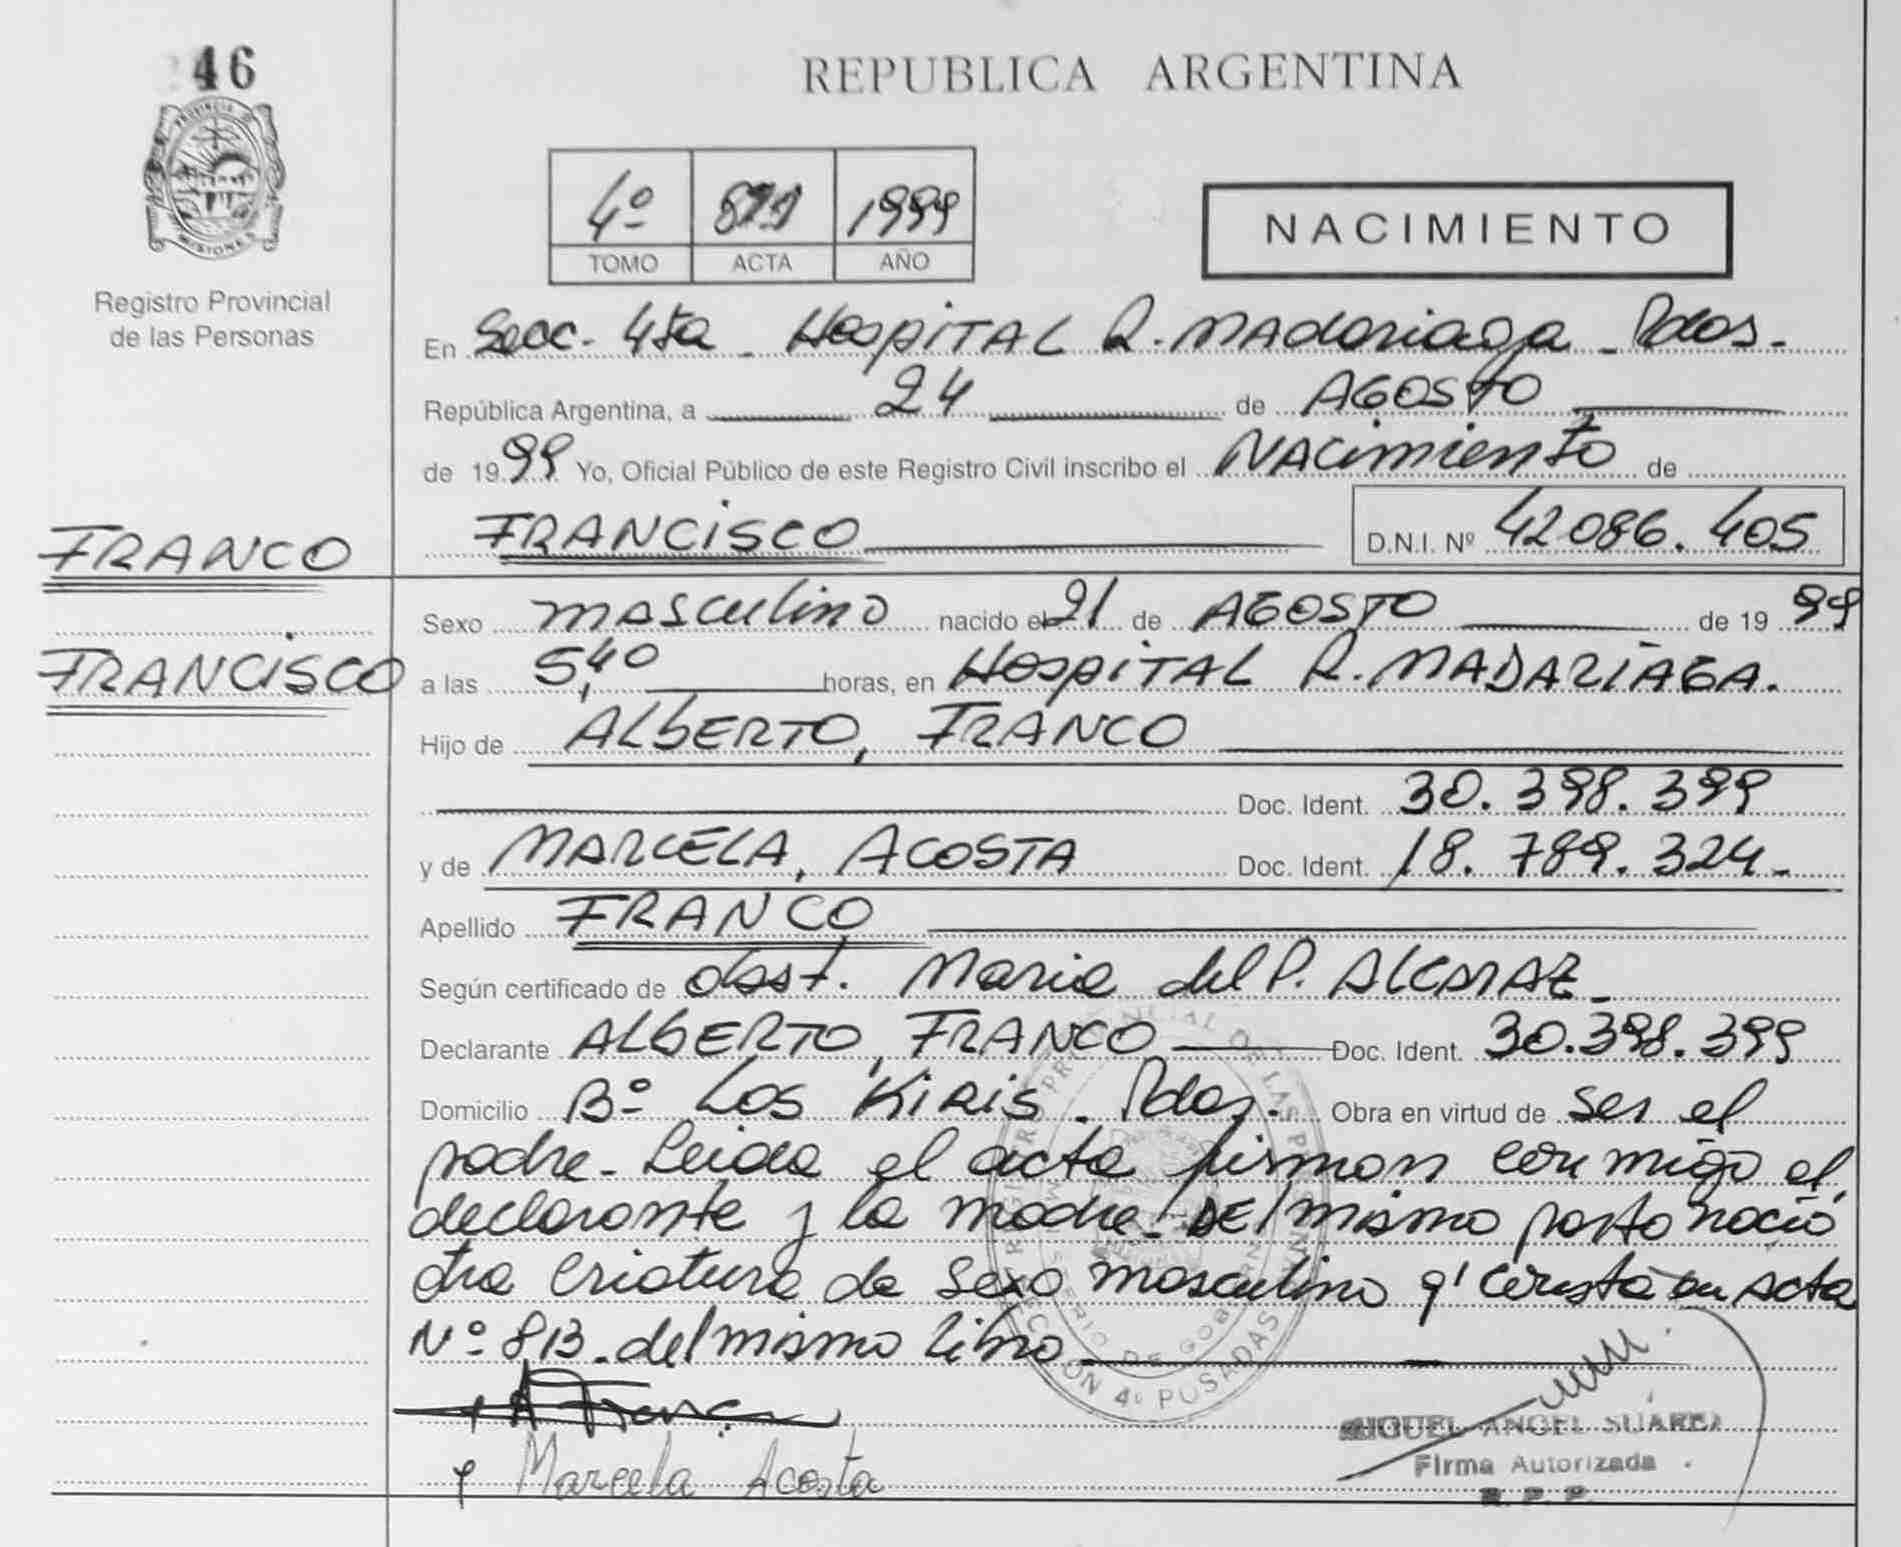 46
PROVINCIA DE
MISIONES
Registro Provincial
de las Personas
REPUBLICA ARGENTINA
4º 1999
TOMO ACTA AÑO
NACIMIENTO
En Secc. 4ta - HospiTAL R. MAdariaga - Pdas.-
República Argentina, a 24 de AGOSTO
de 1999 Yo, Oficial Público de este Registro Civil inscribo el NAcimiento de
FRANCO
FRANCISCO D.N.I. Nº 42086.405
Sexo mAsculino nacido el 21 de AGOSTO de 1999
FRANCISCO
a las 5,40 horas, en HospiTAL R. MADARIAGA.
Hijo de ALBERTO, FRANCO
Doc. Ident. 30.398.399
y de MARCELA, ACOSTA Doc. Ident. 18.789.324.-
Apellido FRANCO
Según certificado de obst. Maria del P. ALCARAZ-
Declarante ALBERTO, FRANCO Doc. Ident. 30.398.399
Domicilio Bº Los KIRIS - Pdas. Obra en virtud de ser el
padre- Leida el acta firman conmigo el
declarante y la madre - DEl mismo parto nació
otra criatura de sexo masculino q' consta en acta
Nº 813 - del mismo libro
A Franco
Marcela Acosta
MIGUEL ANGEL SUAREZ
Firma Autorizada
R. P. P.
REGISTRO PROVINCIAL DE LAS PERSONAS
MINISTERIO DE GOBIERNO
SECCIÓN 4º POSADAS